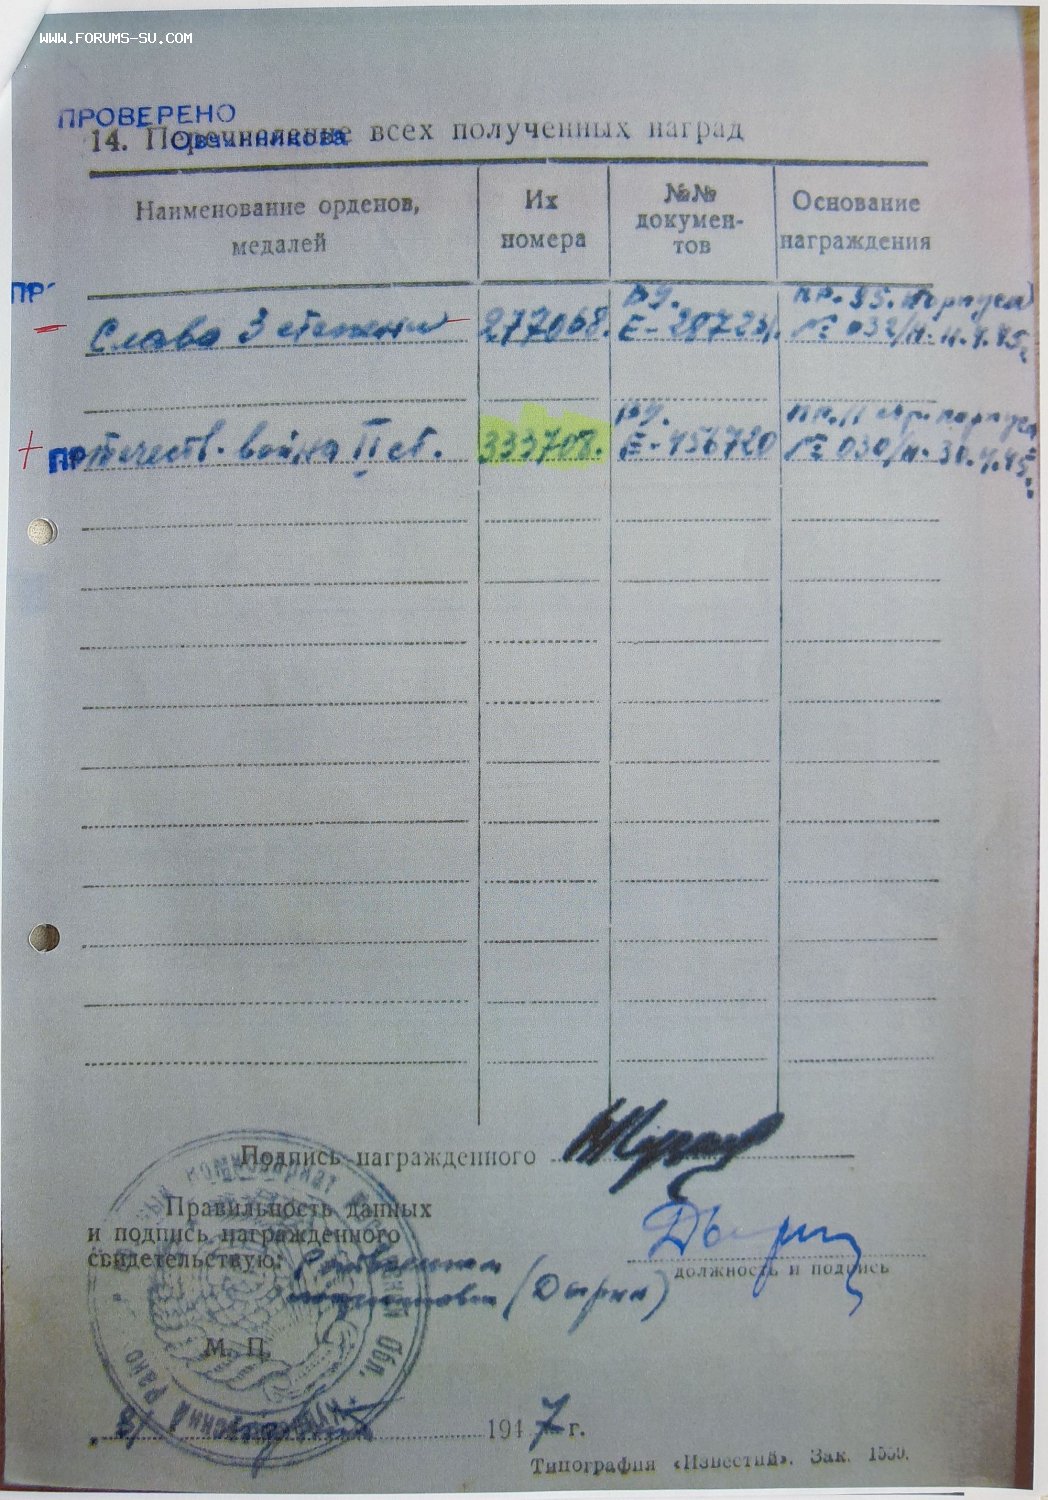 WWW.FORUMS-SU.COM
ПРОВЕРЕНО
Овчинникова
14. Перечисление всех полученных наград
Наименование орденов, медалей
Их номера
№№ докумен-тов
Основание награждения
ПР
Слава 3 степени 277068. ВУ. Е-287231. ПР. 95. корпуса № 032/н. 11.4.45
ПР Отечеств. война II ст. 333708. ВУ. Е-456720 ПР. 11 стр. корпуса № 030/н. 30.4.45
Подпись награжденного
Правильность данных
и подпись награжденного
свидетельствую:
(Дырин)
должность и подпись
М. П.
1947 г.
Типография «Известий». Зак. 1559.